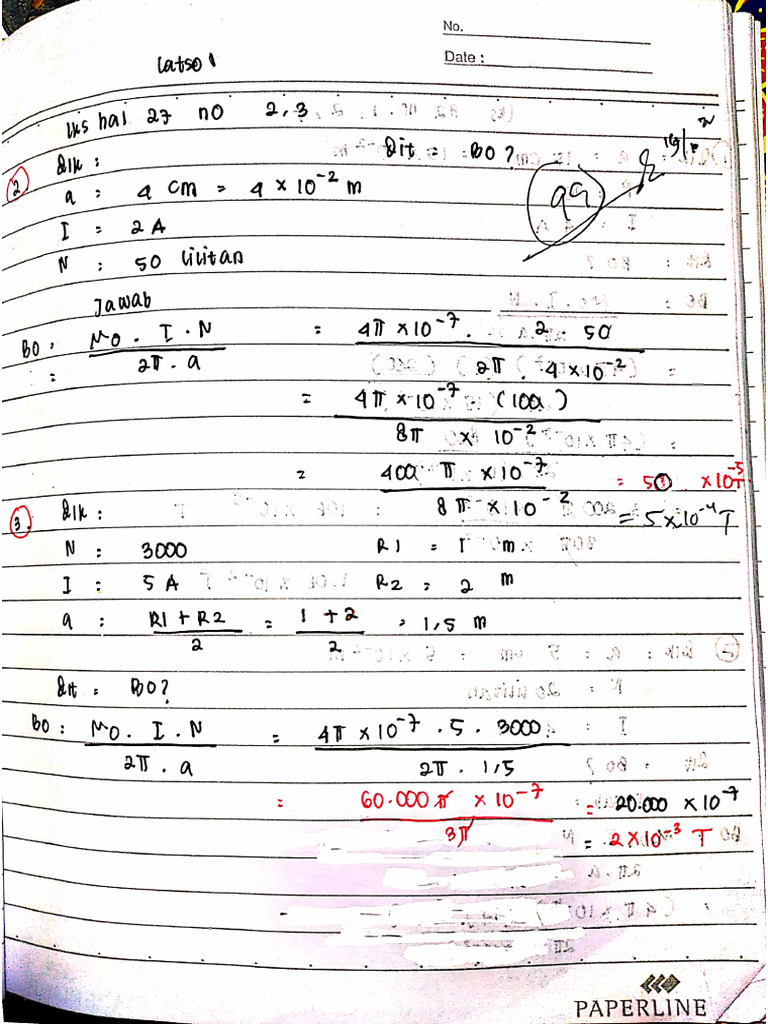 No.
Date :
Latsol
lks hal 27 no 2, 3
② Dik : Dit = BO ?
99
a : 4 cm = 4 × 10⁻² m
I = 2 A
N : 50 lilitan
Jawab
BO : μo . I . N / 2π . a = 4π × 10⁻⁷ . 2 . 50 / 2π . 4 × 10⁻²
= 4π × 10⁻⁷ (100) / 8π × 10⁻²
= 400 π × 10⁻⁷ / 8π × 10⁻² = 50 × 10⁻⁵ T
= 5 × 10⁻⁴ T
③ Dik :
N : 3000 R1 = 1 m
I : 5 A R2 = 2 m
a : R1 + R2 / 2 = 1 + 2 / 2 = 1,5 m
Dit = BO?
BO : μo . I . N / 2π . a = 4π × 10⁻⁷ . 5 . 3000 / 2π . 1,5
= 60.000 π × 10⁻⁷ / 3π = 20.000 × 10⁻⁷
= 2 × 10⁻³ T
PAPERLINE